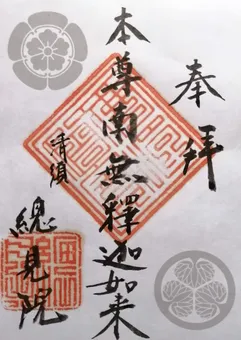 奉拝
本尊南無釋迦如来
清須
總見院